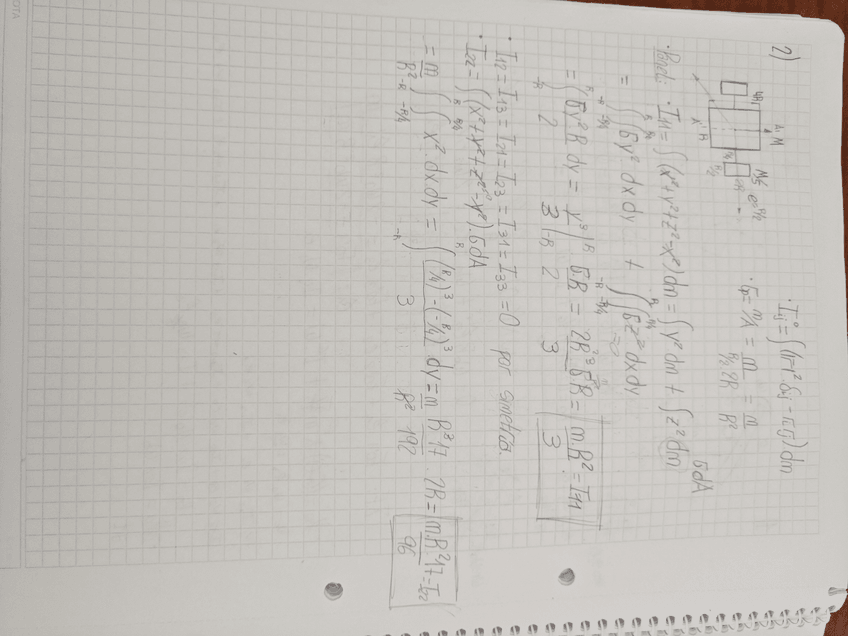 2)
A, M
R
X
M, e=0
· I°ij = ∫(|r|² δij - ri rj) dm
· σ = m/A = m / (R/2 · 2R) = m/R²
σdA
· Pared: · I11 = ∫(x²+y²+z²-x²) dm = ∫y² dm + ∫z² dm
= ∫_{-R}^{R} ∫_{-R/4}^{R/4} σy² dxdy + ∫_{-R}^{R} ∫_{-R/4}^{R/4} σz² dxdy
= ∫_{-R}^{R} σy²R/2 dy = y³/3 |_{-R}^{R} σR/2 = 2R³σR/3 = mR²/3 = I11
· I12 = I13 = I21 = I23 = I31 = I33 = 0 por simetría.
· I22 = ∫(x²+y²+z²-y²) · σdA
= m/R² ∫_{-R}^{R} ∫_{-R/4}^{R/4} x² dxdy = ∫_{-R}^{R} ((R/4)³-(-R/4)³)/3 dy = m/R² R³17/192 2R = mR²17/96 = I22